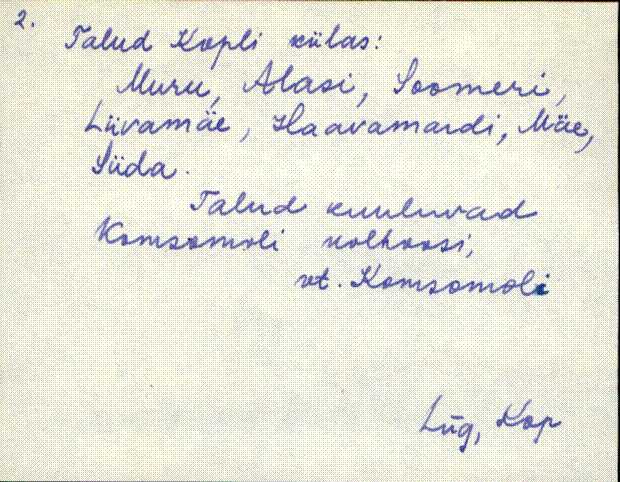 2.
Talud Kopli külas:
Muru, Alasi, Soomeri,
Liivamäe, Haavamardi, Mäe,
Siida.
Talud kuuluvad
Komsomoli kolhoosi,
vt. Komsomoli
Lüg, Kop